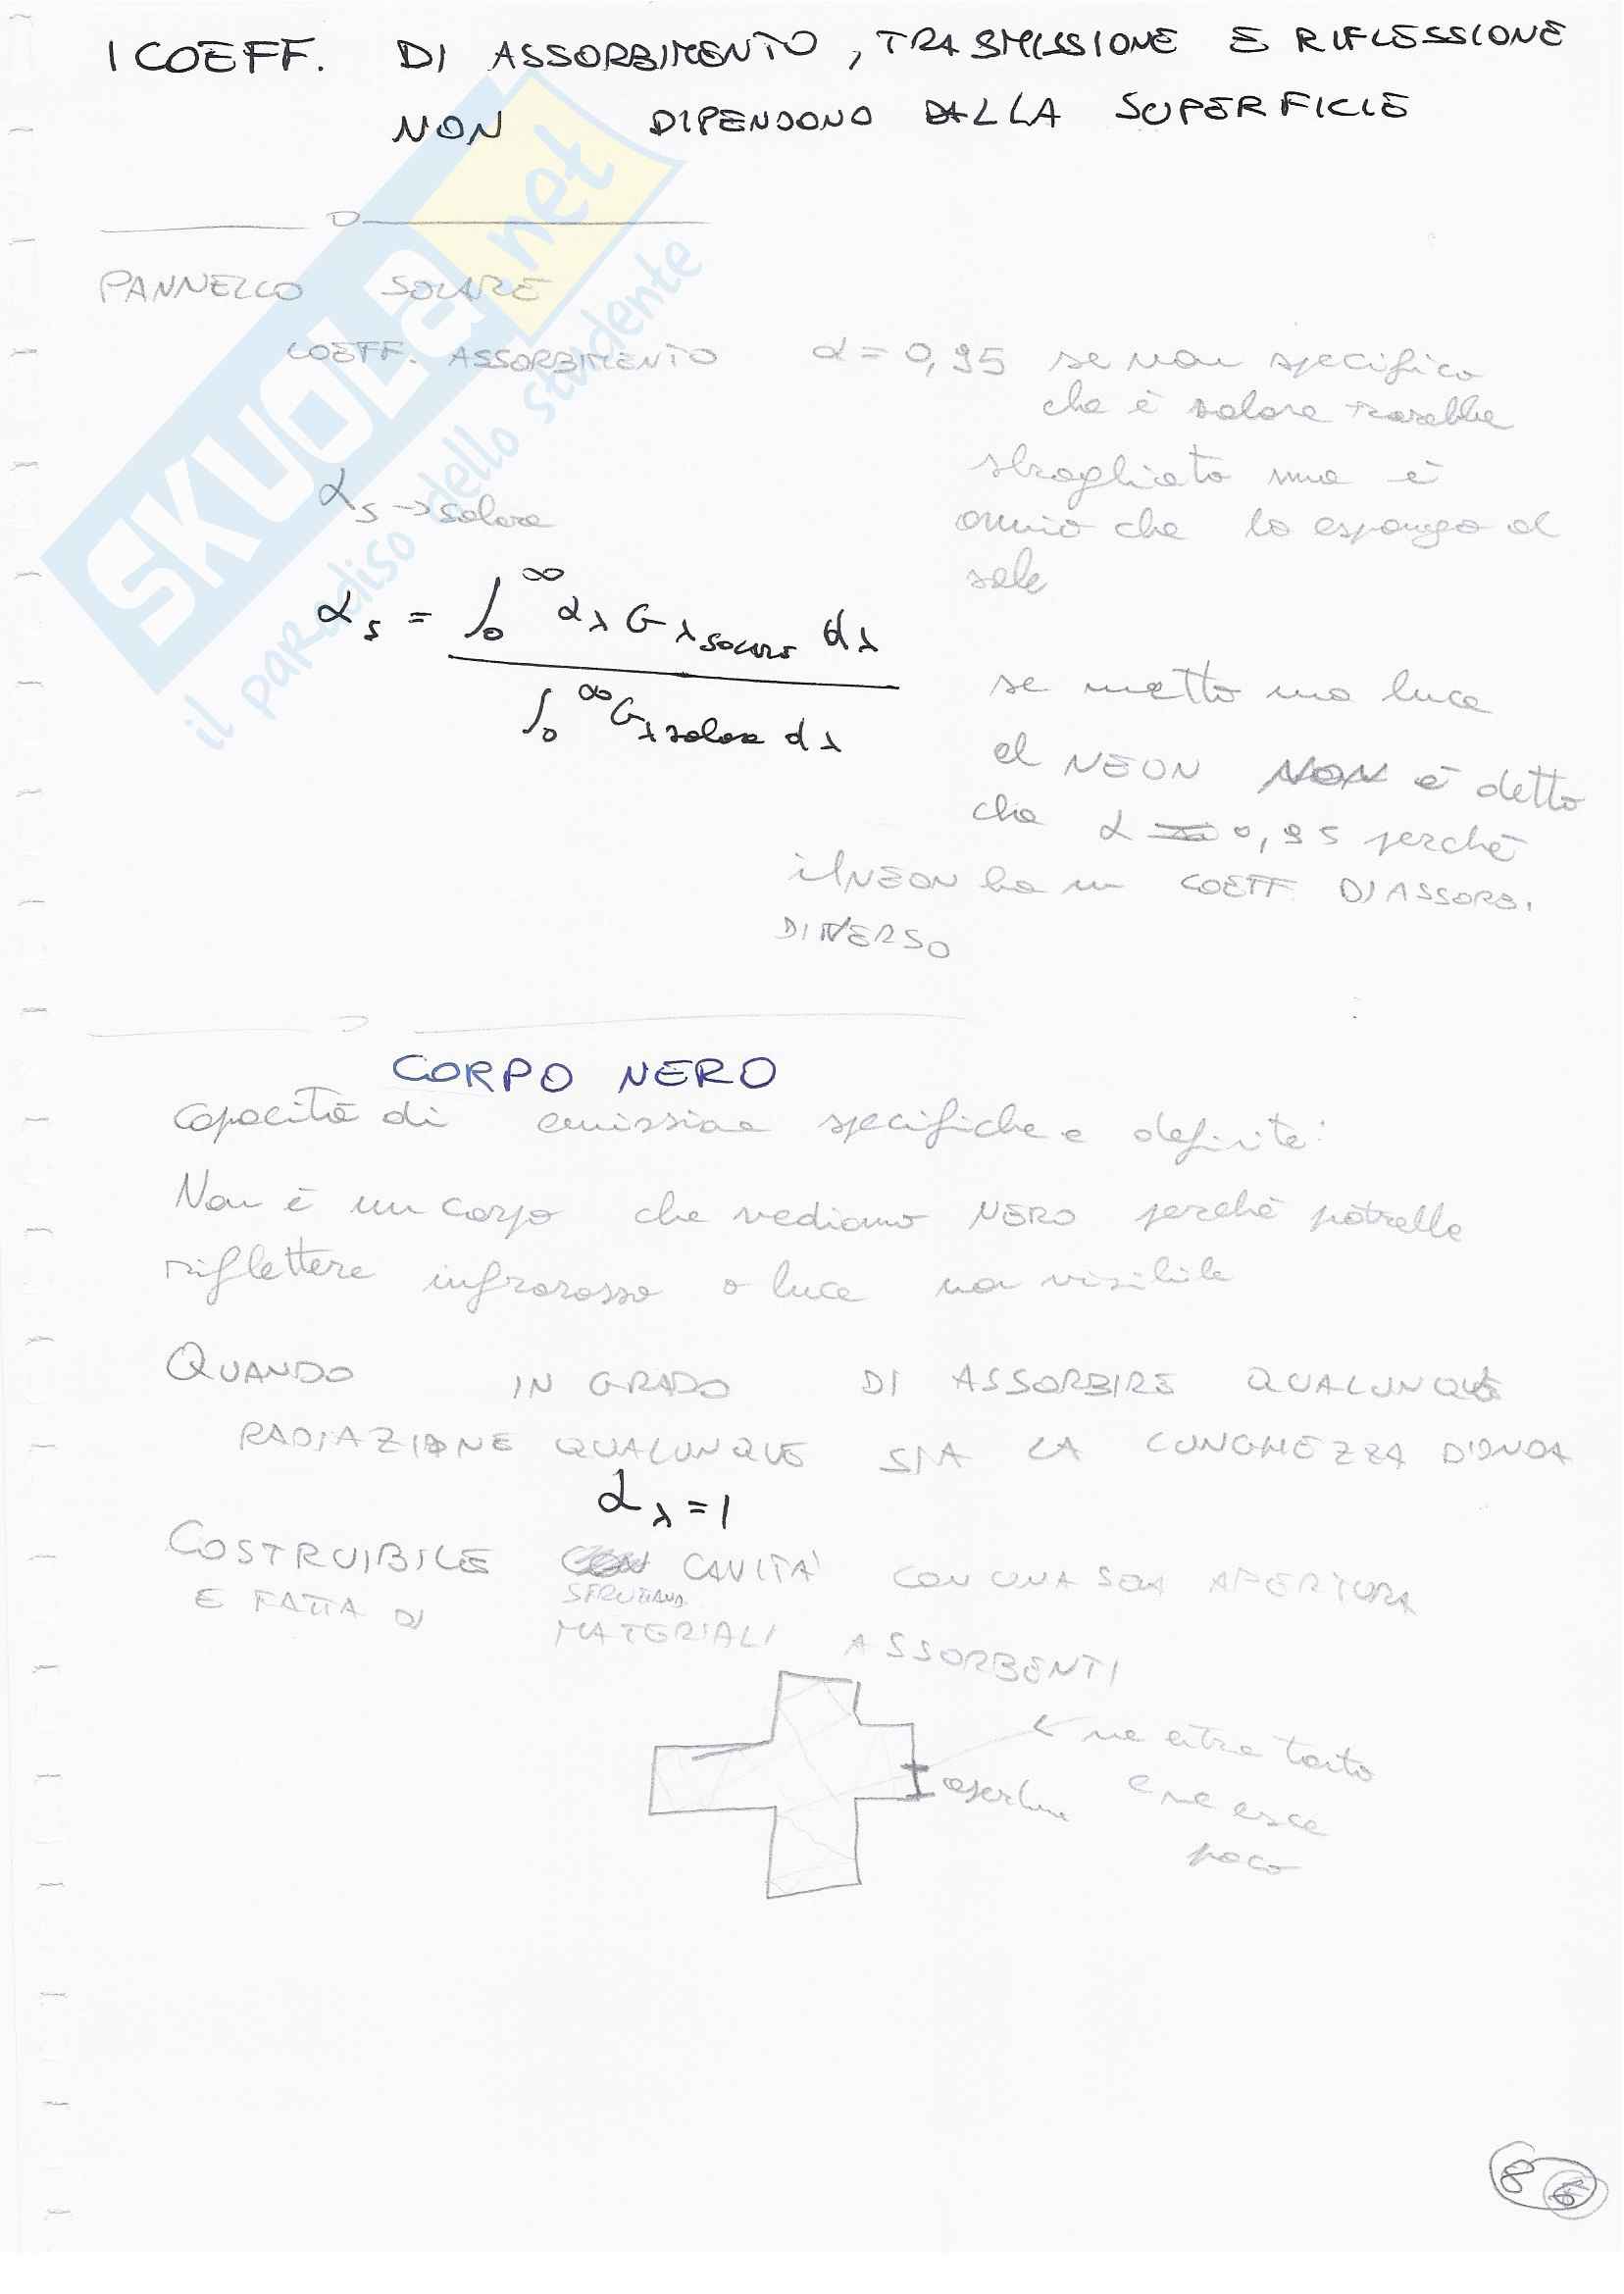 I COEFF. DI ASSORBIMENTO, TRASMISSIONE E RIFLESSIONE
NON DIPENDONO DALLA SUPERFICIE
PANNELLO SOLARE
COEFF. ASSORBIMENTO α = 0,95 se non specifico
che è solare sarebbe
sbagliato ma è
ovvio che lo espongo al
sole
αs → solare
αs = ∫0^∞ αλ Gλ solare dλ
∫0^∞ Gλ solare dλ
se metto una luce
al NEON NON è detto
che α = 0,95 perchè
il NEON ha un COEFF. DI ASSORB.
DIVERSO
CORPO NERO
Capacità di emissione specifiche e definite:
Non è un corpo che vediamo NERO perchè potrebbe
riflettere infrarosso o luce non visibile
QUANDO IN GRADO DI ASSORBIRE QUALUNQUE
RADIAZIONE QUALUNQUE SIA LA LUNGHEZZA D'ONDA
αλ = 1
COSTRUIBILE CON CAVITA' CON UNA SOLA APERTURA
SFRUTTANDO
E FATTA DI MATERIALI ASSORBENTI
← ne entra tanto
apertura e ne esce
poco
86
SKUOLa.net
il paradiso dello studente